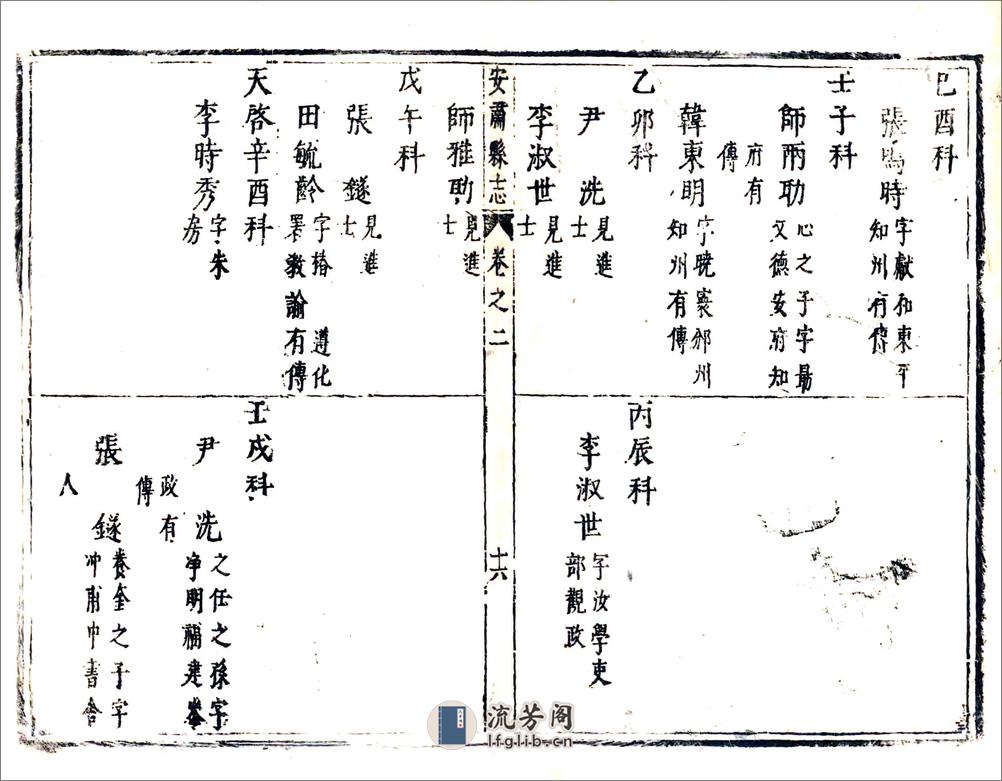 巳酉科
張鳴時 字獻和東平
知州有傳
壬子科
師兩 心之子字易
文德安府知
府有
傳
韓東明 字曉寰邠州
知州有傳
乙卯科
尹洗 見進
士
李淑世 見進
士
丙辰科
李淑世 字汝學吏
部觀政
安肅縣志 卷之二 十六
師雅助 見進
士
戊午科
張鐩 見進
士
田毓齡 字椿 遵化
署教諭有傳
天啓辛酉科
李時秀 字朱
房
壬戌科
尹洗 之任之孫字
净明福建叅
政有
傳
張鐩 養奎之子字
冲甫中書舍
人
流芳阁
lfglib.cn